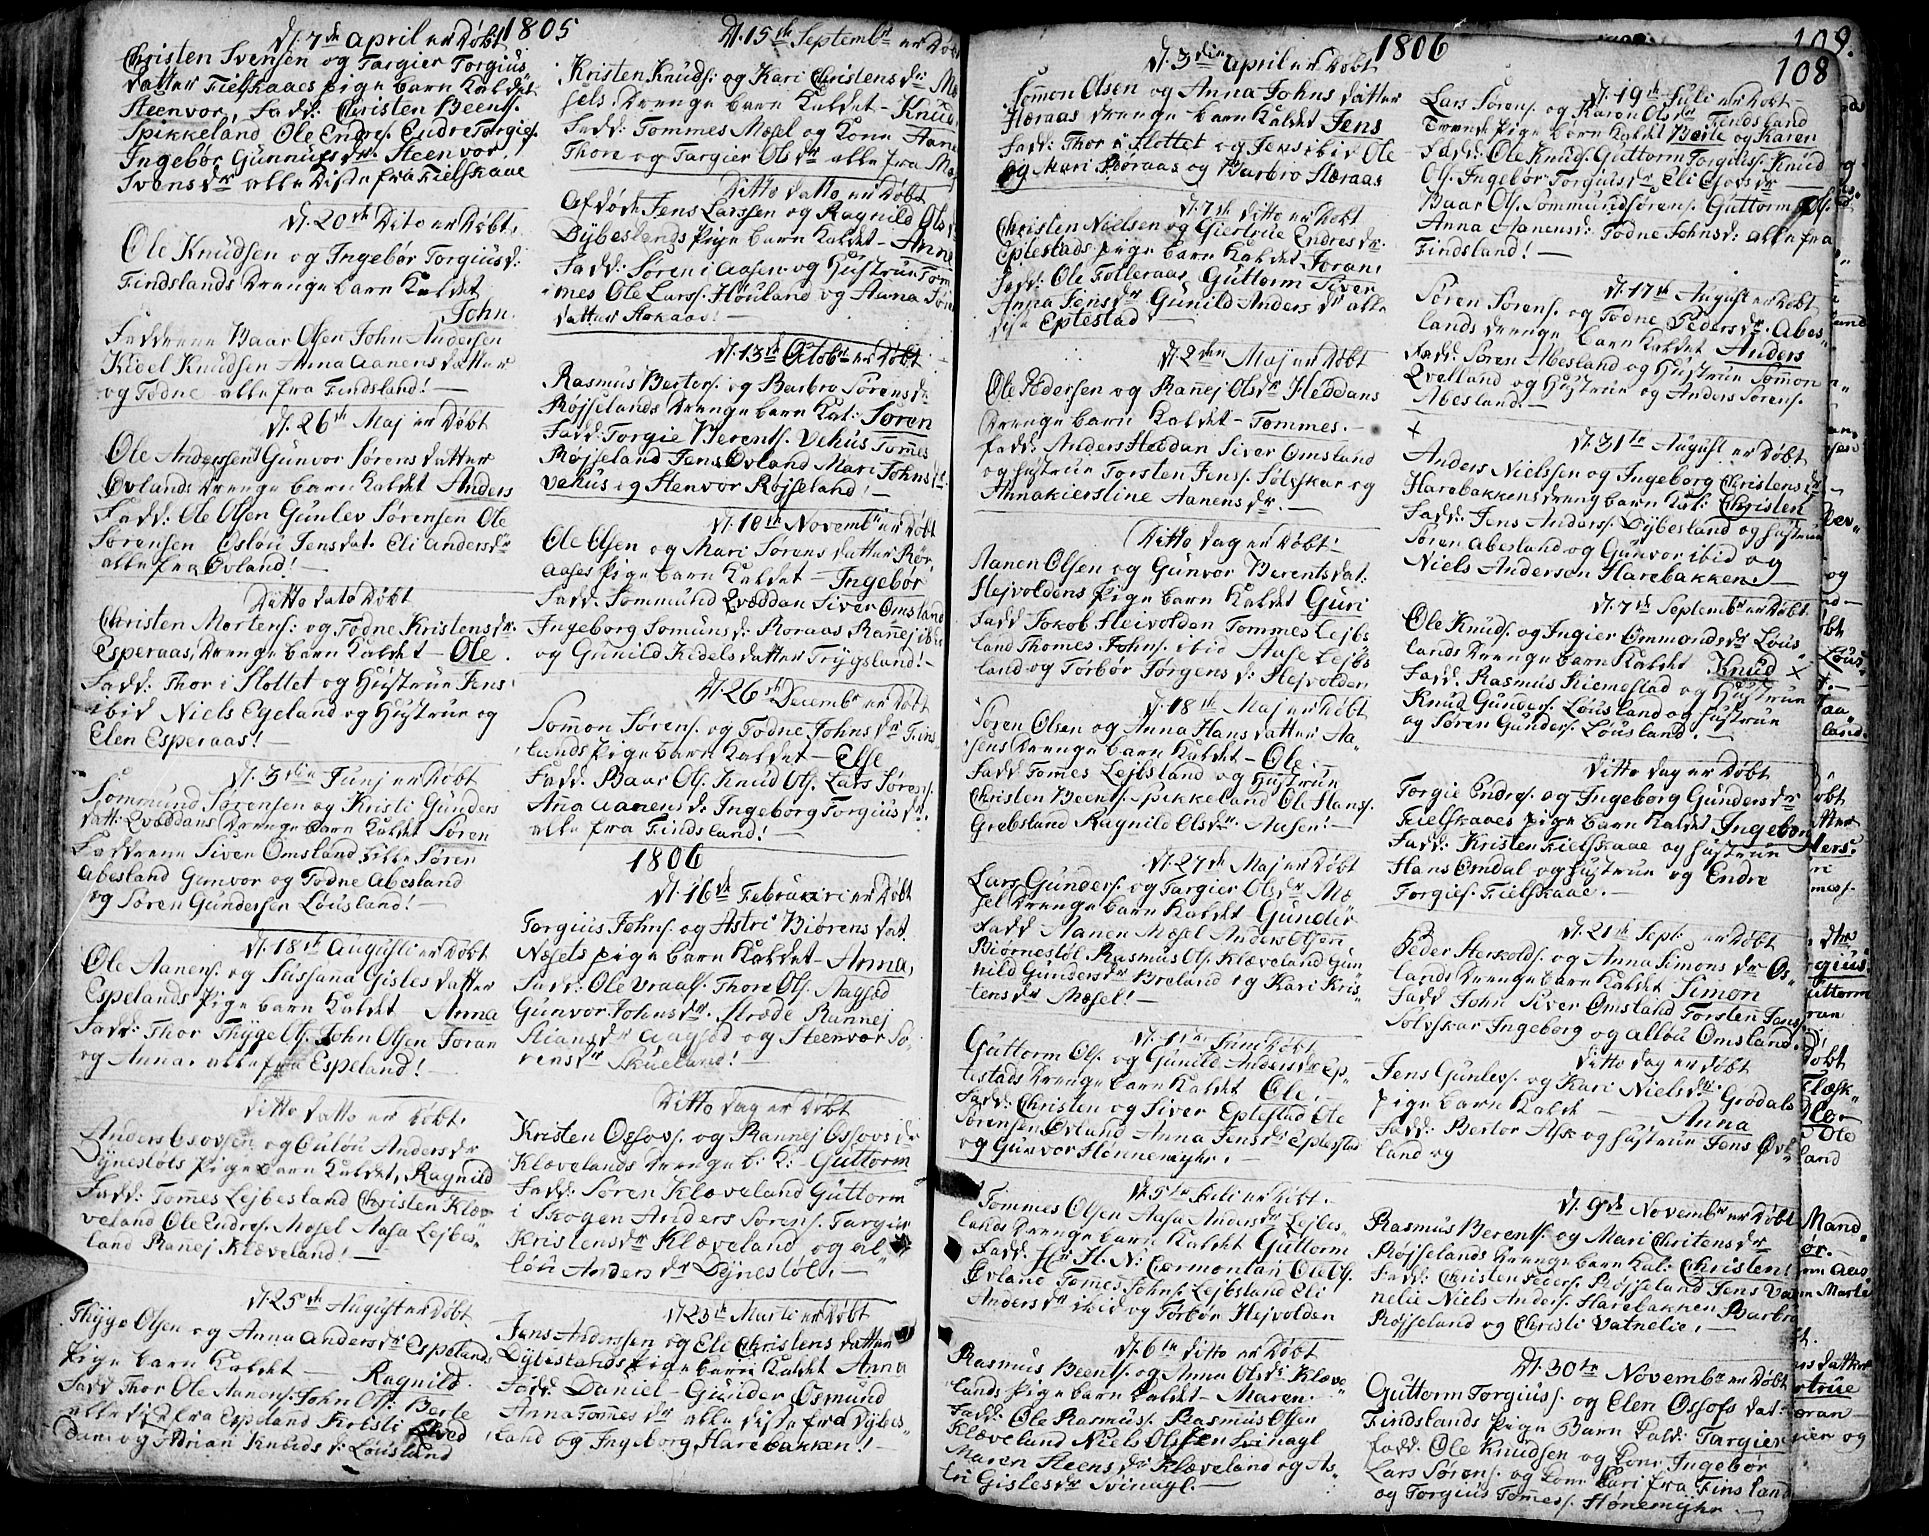 1805
d. 7de April er Døbt
Christen Svensen og Targier Torgius
datter Fielskaaes pige barn Kaldet
Steenvor, Fadd: Christen Beents.
Spikkeland Ole Endres. Endre Torgies.
Ingebor Gunnufs dr. Steenvor
Svens dr alle diste fra Fielskaae
d. 20de Dito er Døbt,
Ole Knudsen og Ingebør Torgius d:
Findslands drenge barn Kaldet
John.
Faddrene Baar Olsen John Andersen
Kidel Knudsen Anna Aanens datter
og Todne alle fra Findsland!
d. 26de Maj er Døbt
Ole Anderssen Gunvor Sørens datter
Øvlands drenge barn Kaldet Anders
Fadd: Ole Olsen Gunlev Sørensen Ole
Sørensen Oslou Jensdat. Eli Anders dr
alle fra Øvland!
Ditto dato Døbt
Christen Mortens: og Todne Kristens dr:
Esperaas, drenge barn Kaldet - Ole.
Fadd: Thor i Slottet og Hustrue Jens
ibid Niels Egeland og Hustrue og
Elen Esperaas!
d. 3die Junj er Døbt
Sommund Sørensen og Kristi Gunders
datt: Qvæddans drenge barn Kaldet Søren
Faddrene Siven Omsland Eille Søren
Abesland Gunvor og Todne Abesland
og Søren Gundersen Lousland!
d. 18de Augusti er Døbt
Ole Aanens. og Sussana Gisles datter
Espelands pige barn Kaldet Anna
Fadd: Thor Thygels. John Olsen Joran
og Anna, alle fra Espeland!
Ditto datto er Døbt.
Anders Osovsen og Oulou Anders dr
Dynestøls pige barn Kaldet, Ragnild
Fadd: Tomes Lejbesland Christen Klæv
veland Ole Endres. Mosel Aasa Lejbes
land Rannej Klæveland!
d. 25de August er Døbt
Thyge Olsen og Anna Anders dr Espelands
pige barn Kaldet Ragnild.
Fadd Thor Ole Aanens. John Ols. Berte
alle diste fra Espeland Kristi
Dam og Adrian Knuds d: Lousland
d. 15de Septembr er Døbt
Kristen Knuds. og Kari Christens dr: Mæ
sels, drenge barn Kaldet - Knud,
Fadd: Tommes Mæsel og Kone Aane
Thore og Targier Ols dr alle fra Mæs
Ditto datto er Døbt
Afdøde Jens Larssen og Ragnild Ols d
Dybeslands pige barn Kaldet - Anne
Fadd: Søren i Aasen og Hustrue Tom
mes Ole Larss. Høuland og Anna Søre
datter Askaas!
d. 13de Octobr er Døbt
Rasmus Bertes. og Barbro Sørens dr
Røjselands drenge barn Kal: Soren
Fadd: Torgie Berents. Vehus Tomes
Røjseland Jens Øvland Mari Johns dr
Vehus og Stenvor Røjseland!
d. 18de Novembr er Døbt
Ole Olsen og Mari Sørens datter Rør,
aases pige barn Kaldet - Ingebor
Fadd: Sommund Qvæddan Siver Omsland
Ingeborg Somuns d: Roraas Rannej ibi
og Gunild Kedels datter Trygsland!
d. 26de Decembr er Døbt
Sommon Sørens. og Todne Johns dr Fins
lands pige barn Kaldet - Else
Fadd: Baar Ols. Knud Ols. Lars Sørens.
Ana Aanens d: Ingeborg Torgius dr.
alle fra Findsland!
1806
d. 16de Februarii er Døbt
Torgius Johns. og Astri Biørens dat.
Næsets pige barn Kaldet - Anna,
Fadd: Ole Vraals. Thore Ols. Aagsod
Gunvor Johns dr. Stræde Rannej
Stians dr Aagsod og Steenvor Sø
rens dr Skueland!
Ditto dag er Døbt
Kristen Ossovs. og Rannej Ossovs dr
Klævelands drenge b: K: - Guttorm
Fadd: Søren Klæveland Guttorm
i Skogen Anders Sørens. Targier
Kristens dr Klæveland og Al
løu Anders dr Dynestøl.
d. 23de Marti er Døbt
Jens Anderssen og Ele Christens datter
Dybeslands pige barn Kaldet Anna
Fadd: Daniel - Gunder Osmund
Anna Tomes dr alle diste fra Dybes
land og Ingeborg Harebakken!
1806
108
109.
d. 3die April er Døbt
Sommon Olsen og Anna Johns datter
Hæraas drenge barn Kaldet Jens
Fadd: Thor i Slottet og Jens ibid Ole
og Mari Roraas og Barbro Hæraas
d. 7de ditto er Døbt
Christen Nielsen og Giertrue Endres dr.
Eplestads pige barn Kaldet Joran,
Fadd: Ole Folleraas, Guttorm Siver
Anna Jens dr Gunild Anders dr alle
diste Eplestad
d. 2den Maj er Døbt
Ole Pedersen og Rannej Ols dr Heddans
drenge barn Kaldet - Tommes.
Fadd: Anders Heddan Siver Omsland
og hustrue Torsten Jens. Sølvskar og
Annakierstine Aanens dr.
Ditto dag er Døbt!
Aanen Olsen og Gunvor Berentsdat.
Hejvoldens pige barn Kaldet Guri
Fadd Jokob Heivolden Tommes Lejbs
land Thomes Johns. ibid Aase Lejbs
land og Torbor Jørgens d: Hejvolden
d. 18de Maj er Døbt
Søren Olsen og Anna Hans datter Aa
sens drenge barn Kaldet - Ole
Fadd Tomes Lejbsland og Hustrue
Christen Beents. Spikkeland Ole Hans.
Grebsland Ragnild Ols dr Aasen!
d. 27de Maj er Døbt
Lars Gunders. og Targier Ols dr Mæ
sel drenge barn Kaldet Gunder
Fadd Aanen Mæsel Anders Olsen
Biørnestøl Rasmus Ols. Klæveland Gun
nild Gunders dr Breland og Kari Kris
tens dr Mæsel!
d. 1te Juni Døbt
Guttorm Ols. og Gunild Anders dr Ep
lestads drenge barn Kaldet Ole,
Fadd: Christen og Siver Eplestad Ole
Sørensen Øvland Anna Jens dr Eplestad
og Gunvor Hønnemyhr.
d. 5te Juli er Døbt.
Tommes Olsen Aasa Anders dr Lejbes
lands drenge barn Kaldet Guttorm
Fadd: Hr H. N: Cærmontan Ole Ols.
Øvland Tomes Johns. Lejbsland Eli
Anders dr ibid og Torbør Hejvolden
d. 6te ditto er Døbt
Rasmus Beents. og Anna Ols d: Klæve
lands pige barn Kaldet - Maren.
Fadd: Ole Rasmus. Rasmus Olsen
Klæveland Niels Olssen Svinagl
Maren Steens dr Klæveland og As
tri Gisles dr Svinagl.
d. 19de Juli er Døbt
Lars Sørens. og Karen Ols dr Findsland
Trende pige barn Kaldet Berte og Karen
Fadd: Ole Knuds. Guttorm Torgius. Knud
Ols. Ingebør Torgius dr Eli Osovs dr
Baar Ols. Sommund Sørens. Guttorm Ols.
Anna Aanens d: Todne Johns d: alle fra
Findsland!
d. 17de August er Døbt
Soren Sørens. og Todne Peders dr. Abes
lands drenge barn Kaldet Anders
Fadd: Søren Abesland og Hustrue Sommon
Qvelland og Hustrue og Anders Sørens.
Abesland.
+
d. 31te August er Døbt
Anders Nielssen og Ingeborg Christens dr
Harebakkens dreng barn Kal: Christen
Fadd: Jens Anders. Dybesland og hustrue
Soren Abesland og Gunvor ibid og
Niels Anderson Harebakken.
d. 7de Septembr er Døbt.
Ole Knuds. og Ingier Ommonds dr Lous
lands drenge barn Kaldet Knud ×
Fadd. Rasmus Kiemestad og Hustrue
Knud Gunders. Lousland og hustrue
og Søren Gunders. Lousland.
Ditto dag er Døbt
Torgie Endres. og Ingeborg Gunders dr
Fielskaaes pige barn Kaldet Ingeborg
Fadd: Kristen Fielskaae og hustrue
Hans Omdal og hustrue og Endre
Torgies. Fielskaae.
d. 21de Sept. er Døbt
Peder Herkolds. og Anna Simons dr Os
lands drenge barn Kaldet Simon
Fadd John Siver Omsland Torsten Jens.
Solvskar Ingeborg og Allou Omsland.
Ditto dag er Døbt
Jens Gunlevs. og Kari Niels dr Grødals
pige barn Kaldt Anna
Fadd: Bertor Ask og hustrue Jens Øvl
land og
d. 9de Novembr er Døbt
Rasmus Berents. og Mari Chritens dr
Røjselands drenge barn Kal: Christen!
Fadd: Christen Peders. Røjseland Jens Vat
nelie Niels Anders. Harebakken Barbro
Røjseland og Christi Vatnelie,
d. 30te Novembr er Døbt
Guttorm Torgius. og Elen Ossofs dat:
Findslands Pige Barn Kald: Targier
Fadd: Ole Knudsen og Kone Ingebor
Lars Sørens. og Kone Kari fra Finsland
og Torgius Tomes. Hønemyhr.